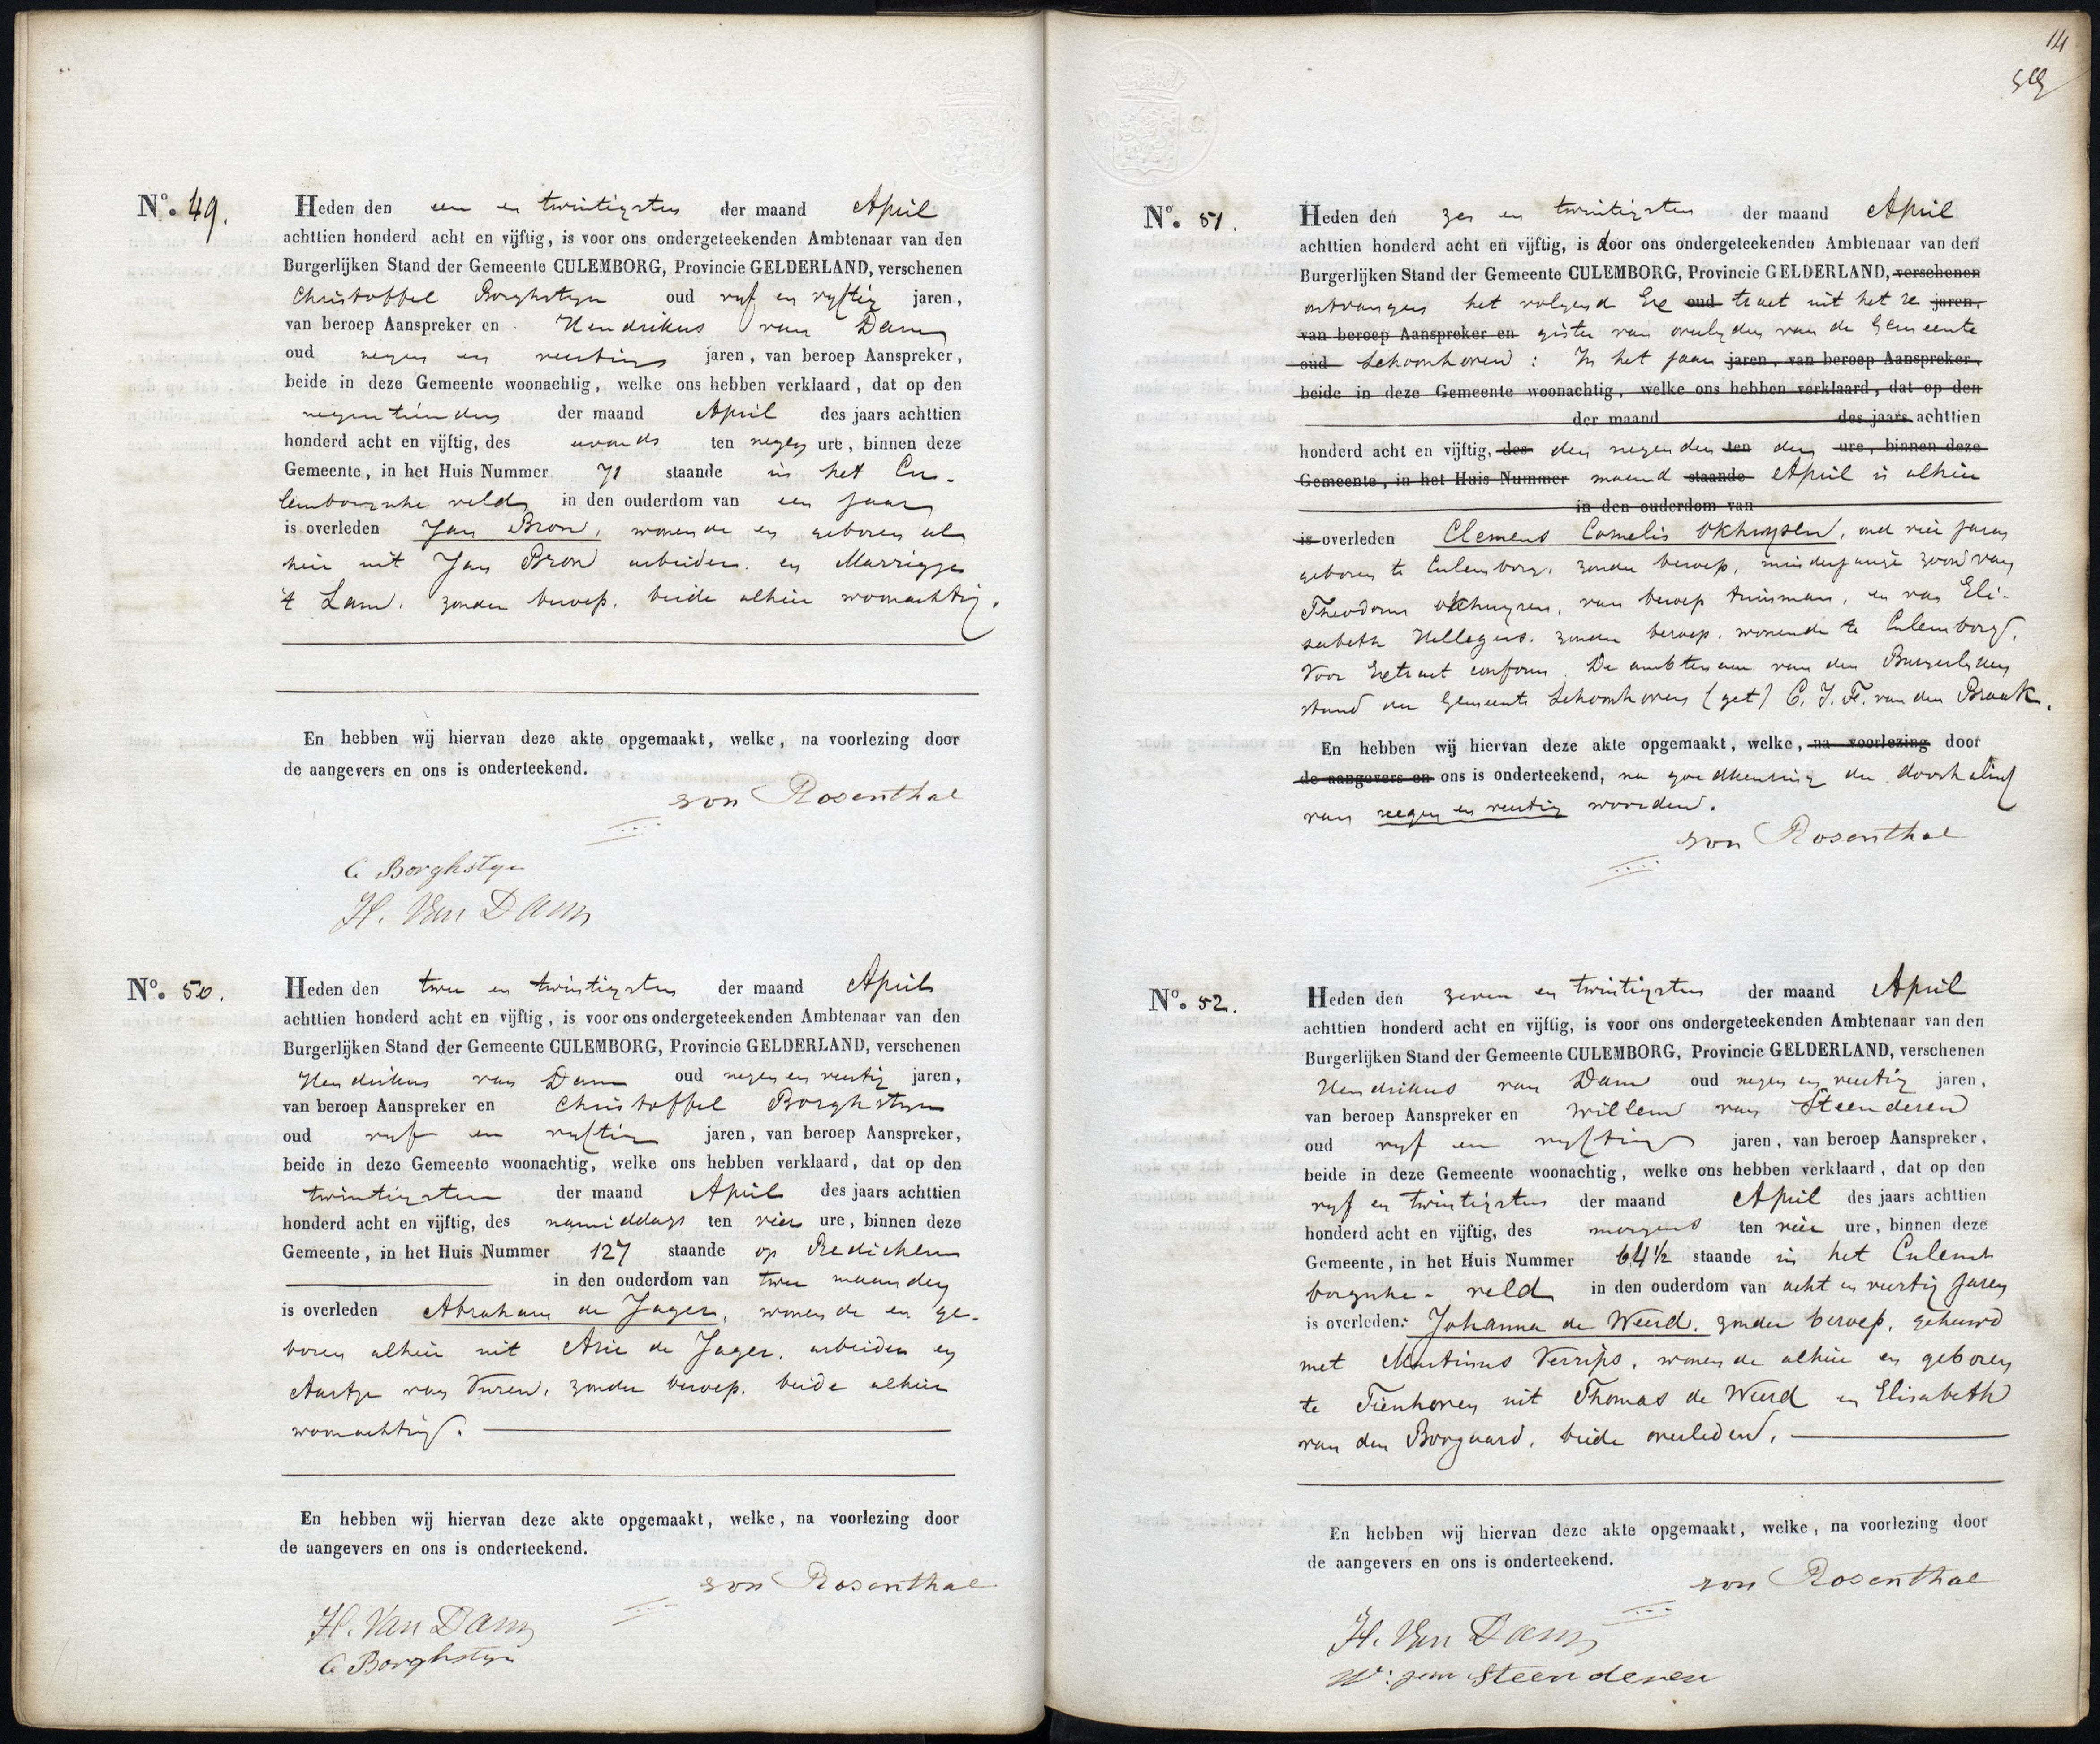 Nº. 49.
Heden den een en twintigsten der maand April
achttien honderd acht en vijftig, is voor ons ondergeteekenden Ambtenaar van den
Burgerlijken Stand der Gemeente CULEMBORG, Provincie GELDERLAND, verschenen
Christoffel Borghstyn oud vyf en vyftig jaren,
van beroep Aanspreker en Hendrikus van Dam
oud negen en veertig jaren, van beroep Aanspreker,
beide in deze Gemeente woonachtig, welke ons hebben verklaard, dat op den
negentienden der maand April des jaars achttien
honderd acht en vijftig, des avonds ten negen ure, binnen deze
Gemeente, in het Huis Nummer 71 staande in het Cu-
lemborgsche veld in den ouderdom van een jaar
is overleden Jan Bron, wonende en geboren al
hier uit Jan Bron arbeider. en Marrigje
't Lam, zonder beroep, beide alhier woonachtig.
En hebben wij hiervan deze akte opgemaakt, welke, na voorlezing door
de aangevers en ons is onderteekend.
von Rosenthal
C Borghstyn
H. Van Dam
Nº. 50.
Heden den twee en twintigsten der maand April
achttien honderd acht en vijftig, is voor ons ondergeteekenden Ambtenaar van den
Burgerlijken Stand der Gemeente CULEMBORG, Provincie GELDERLAND, verschenen
Hendrikus van Dam oud negen en veertig jaren,
van beroep Aanspreker en Christoffel Borghstyn
oud vyf en vyftig jaren, van beroep Aanspreker,
beide in deze Gemeente woonachtig, welke ons hebben verklaard, dat op den
twintigsten der maand April des jaars achttien
honderd acht en vijftig, des namiddags ten vier ure, binnen deze
Gemeente, in het Huis Nummer 127 staande op Redichem
in den ouderdom van twee maanden
is overleden Abraham de Jager, wonende en ge-
boren alhier uit Arie de Jager, arbeider en
Aartje van Vuren, zonder beroep, beide alhier
woonachtig.
En hebben wij hiervan deze akte opgemaakt, welke, na voorlezing door
de aangevers en ons is onderteekend.
von Rosenthal
H. Van Dam
C Borghstyn
14
Nº. 51.
Heden den zes en twintigsten der maand April
achttien honderd acht en vijftig, is door ons ondergeteekenden Ambtenaar van den
Burgerlijken Stand der Gemeente CULEMBORG, Provincie GELDERLAND, verschenen
ontvangen het volgend Ex oud tract uit het re jaren,
van beroep Aanspreker en gister van overlyden van de Gemeente
oud Schoonhoven: In het jaar jaren, van beroep Aanspreker,
beide in deze Gemeente woonachtig, welke ons hebben verklaard, dat op den
der maand des jaars achttien
honderd acht en vijftig, des den negenden ten der ure, binnen deze
Gemeente, in het Huis Nummer maand staande April is alhier
in den ouderdom van
is overleden Clemens Cornelis Okhuysen, oud vier jaren
geboren te Culemborg, zonder beroep, minderjarige zoon van
Theodorus Okhuysen, van beroep tuinman, en van Eli-
sabeth Hellegers, zonder beroep, wonende te Culemborg.
Voor Extract conform. De ambtenaar van den Burgerlyken
stand der Gemeente Schoonhoven (get) C. J. F. van den Braak.
En hebben wij hiervan deze akte opgemaakt, welke, na voorlezing door
de aangevers en ons is onderteekend, na goedkeuring der doorhaling
van negen en veertig woorden.
von Rosenthal
Nº. 52.
Heden den zeven en twintigsten der maand April
achttien honderd acht en vijftig, is voor ons ondergeteekenden Ambtenaar van den
Burgerlijken Stand der Gemeente CULEMBORG, Provincie GELDERLAND, verschenen
Hendrikus van Dam oud negen en veertig jaren,
van beroep Aanspreker en Willem van Steenderen
oud vyf en vyftig jaren, van beroep Aanspreker,
beide in deze Gemeente woonachtig, welke ons hebben verklaard, dat op den
vyf en twintigsten der maand April des jaars achttien
honderd acht en vijftig, des morgens ten vier ure, binnen deze
Gemeente, in het Huis Nummer 64½ staande in het Culem
borgsche- veld in den ouderdom van acht en veertig jaren
is overleden: Johanna de Weerd, zonder beroep, gehuwd
met Martinus Verrips, wonende alhier en geboren
te Tienhoven uit Thomas de Weerd en Elisabeth
van den Boogaard, beide overleden.
En hebben wij hiervan deze akte opgemaakt, welke, na voorlezing door
de aangevers en ons is onderteekend.
von Rosenthal
H. Van Dam
W: van Steenderen